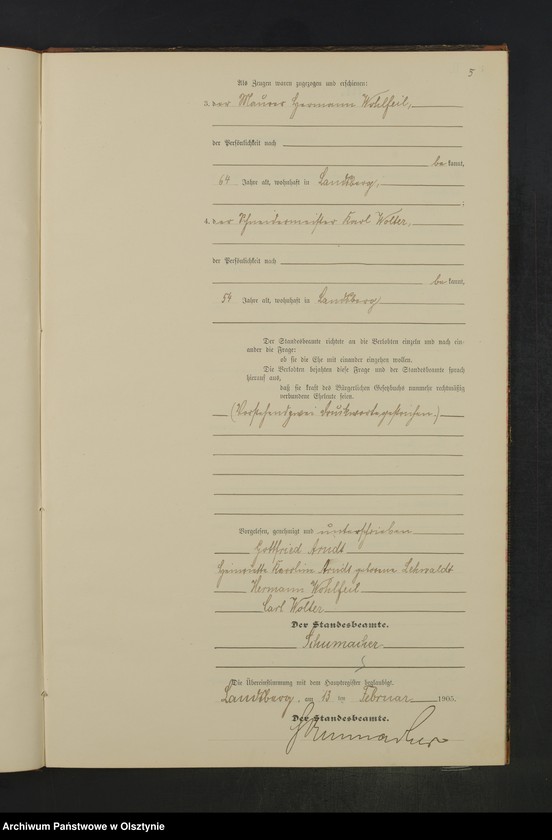 3
Als Zeugen waren zugezogen und erschienen:
3. der Maurer Hermann Wohlfeil,
der Persönlichkeit nach
be kannt,
64 Jahre alt, wohnhaft in Landsberg,
;
4. der Schneidermeister Karl Wolter,
der Persönlichkeit nach
be kannt,
54 Jahre alt, wohnhaft in Landsberg
Der Standesbeamte richtete an die Verlobten einzeln und nach ein-
ander die Frage:
ob sie die Ehe mit einander eingehen wollen.
Die Verlobten bejahten diese Frage und der Standesbeamte sprach
hierauf aus,
daß sie kraft des Bürgerlichen Gesetzbuchs nunmehr rechtmäßig
verbundene Eheleute seien.
(Vorstehend zwei Druckworte gestrichen.)
Vorgelesen, genehmigt und unterschrieben
Gottfried Arndt
Henriette Karoline Arndt geborene
Hermann Wohlfeil
Carl Wolter
Der Standesbeamte.
Schumacher
Die Übereinstimmung mit dem Hauptregister beglaubigt.
Landsberg, am 13 ten Februar 1905.
Der Standesbeamte.
Schumacher
Archiwum Państwowe w Olsztynie